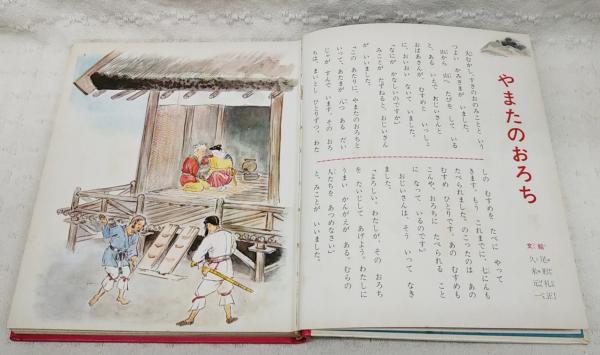 やまたのおろち
文・久米元一
絵・尾形礼正
大むかし、すさのおのみことと いう
つよい かみさまが いました。
山から 山へ たびを して いる
と、ある いえで おじいさんと
おばあさんが、むすめと いっしょ
に、おいおい ないて いました。
「なにが かなしいのですか」
みことが たずねると、おじいさん
が いいました。
「この あたりに、やまたのおろちと
いって、あたまが 八つ ある だい
じゃが すんで います。その おろ
ちは、まいとし ひとりずつ、わた
しの むすめを たべに やって
きます。もう これまでに、七にんも
たべられました。のこったのは あの
むすめ ひとりです。あの むすめも
こんや、おろちに たべられる こと
に なって いるのです」
おじいさんは、そう いって なき
ました。
「よろしい、わたしが、その おろち
を たいじして あげよう。わたしに
うまい かんがえが ある。むらの
人たちを あつめなさい」
と、みことが いいました。